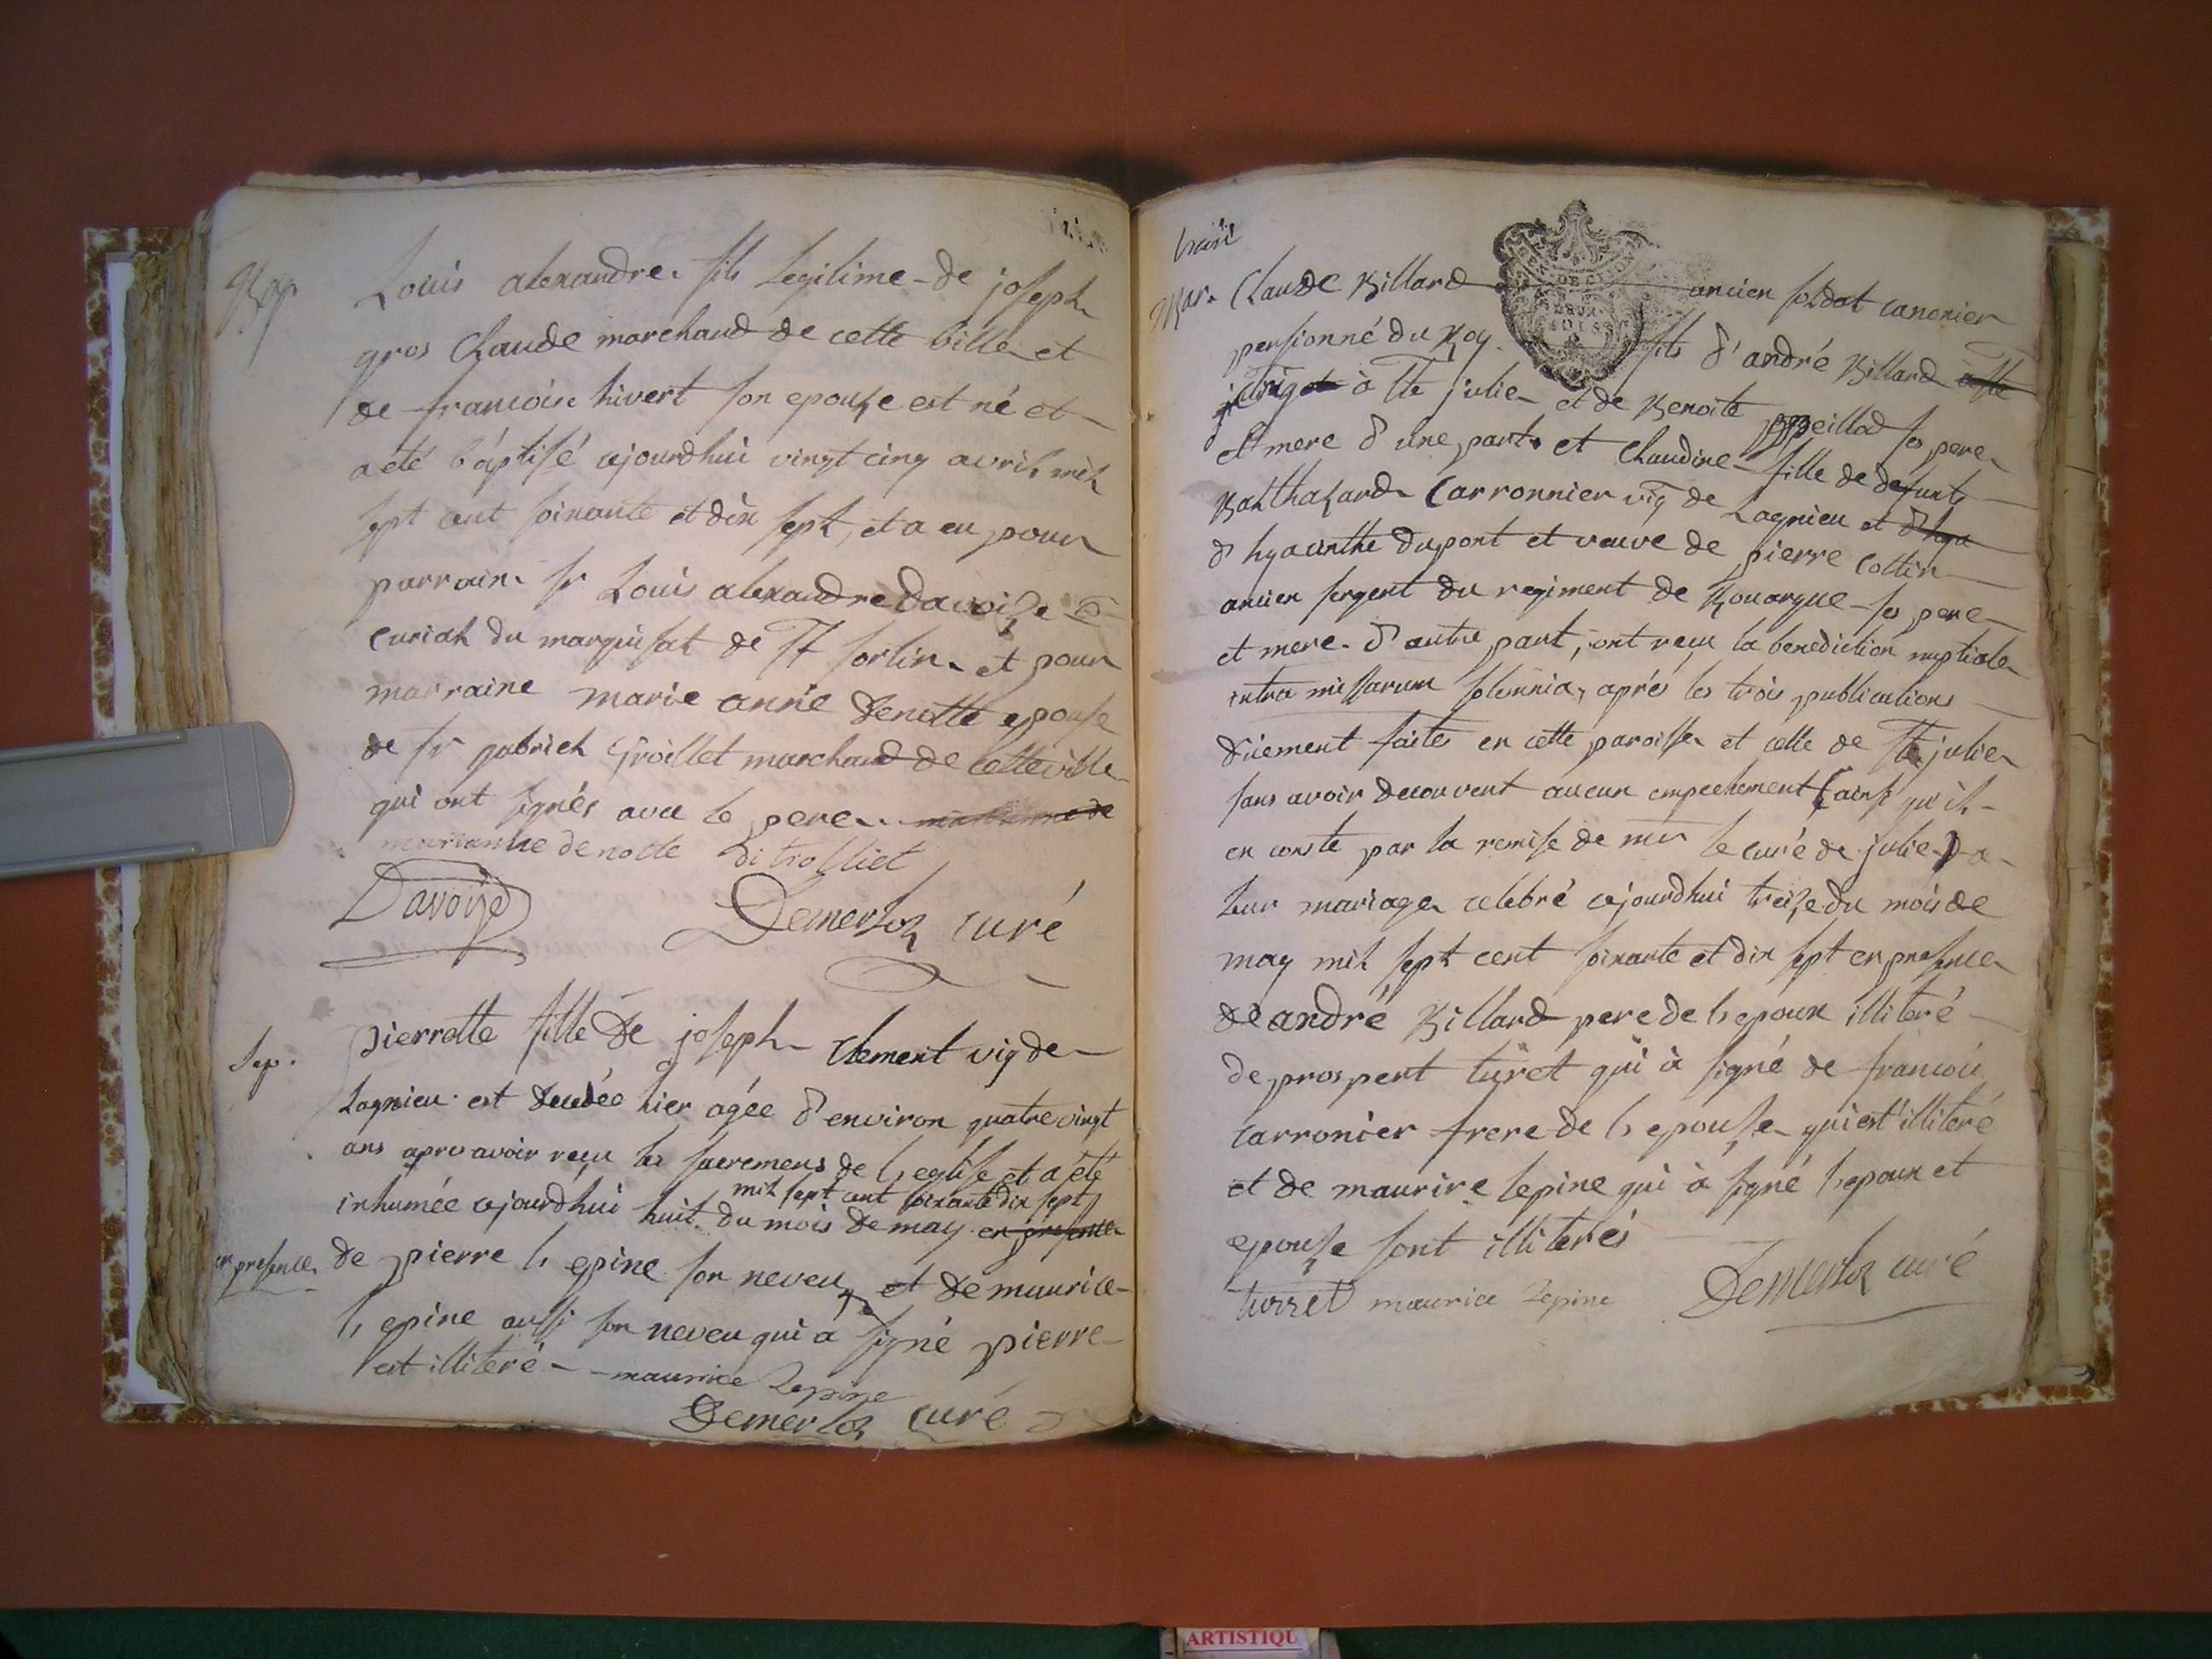 Bap
Louis alexandre fils legitime de joseph
gros Claude marchand de cette ville et
de francoise hivert son epouse est né et
a eté báptisé cejourdhui vingt cinq avril mil
sept cent soixante et dix sept, et a eu pour
parrain sr Louis alexandre Davoize
curial du marquisat de St sorlin et pour
marraine marie anne denotte epouse
de sr gabriel Troillet marchand de cette ville
qui ont signés avec le pere
marianne denotte
Davoize Demerloz curé
Sep.
pierrette fille de joseph clement vig de
Lagnieu est decedée hier agée d'environ quatre vingt
ans apres avoir reçu les sacremens de l'eglise et a été
mil sept cent soixante dix sept
inhumée cejourdhui huit du mois de may en presence
en presence
de pierre l'epine son neveu et de maurice
l'epine aussi son neveu qui a signé pierre
est illiteré maurice Lepine
Demerloz curé
huit
GEN. DE DIJON
DEUX
Mar. Claude Billard ancien soldat canonier
pensionné du Roy fils d'andré Billard
à Ste julie et de Benoite peillod ses pere
et mere d'une part et Claudine fille de défunts
Balthazard Carronnier vig de Lagnieu et d'hya
d'hyacinthe dupont et veuve de pierre Collin
ancien sergent du regiment de Rouargue ses pere
et mere d'autre part, ont reçu la benediction nuptiale
intra missarum solemnia, aprés les trois publications
duement faites en cette paroisse et celle de Ste julie
sans avoir decouvert aucun empechement (ainsi qu'il
en conste par la remise de mr le curé de julie) a
leur mariage celebré cejourdhui treize du mois de
may mil sept cent soixante et dix sept en presence
de andré Billard pere de l'epoux illiteré
de prospert turet qui à signé de francois
Carronier frere de l'epouse qui est illiteré
et de maurire lepine qui à signé l'epoux et
epouse sont illiterés
turret maurice Lepine Demerloz curé
ARTISTIQU